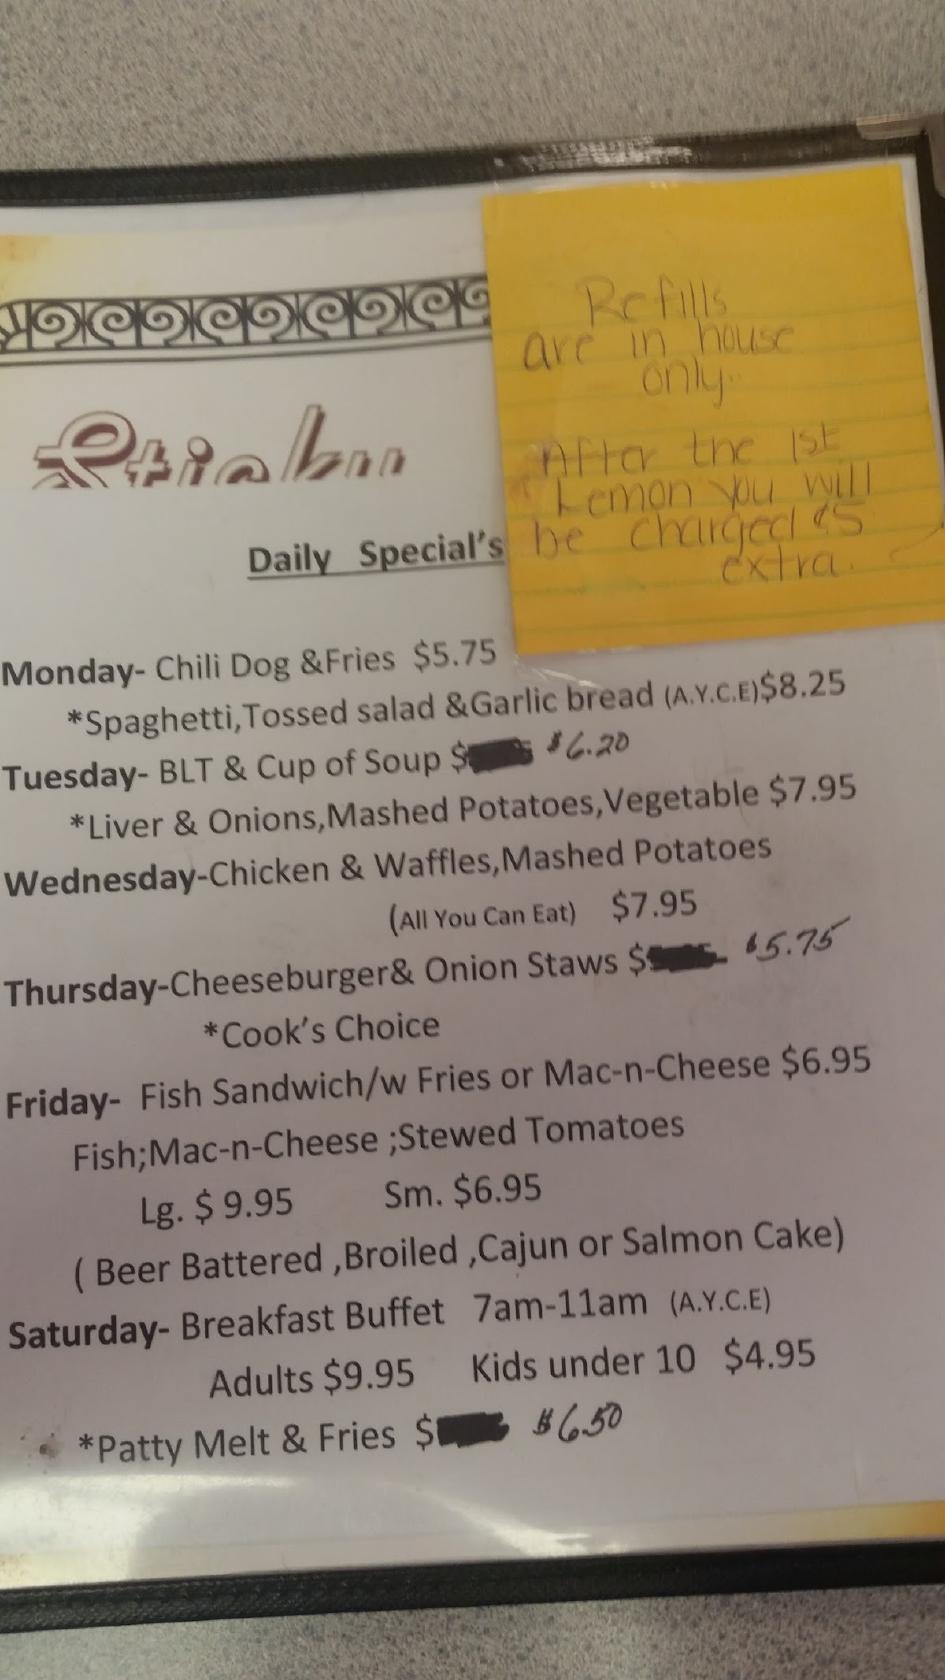 Refills
are in house
only.
After the 1st
Lemon you will
be charged ¢5
extra.
Daily Special's
Monday- Chili Dog &Fries $5.75
*Spaghetti,Tossed salad &Garlic bread (A.Y.C.E)$8.25
Tuesday- BLT & Cup of Soup $ $6.20
*Liver & Onions,Mashed Potatoes,Vegetable $7.95
Wednesday-Chicken & Waffles,Mashed Potatoes
(All You Can Eat) $7.95
Thursday-Cheeseburger& Onion Staws $ $5.75
*Cook's Choice
Friday- Fish Sandwich/w Fries or Mac-n-Cheese $6.95
Fish;Mac-n-Cheese ;Stewed Tomatoes
Lg. $ 9.95 Sm. $6.95
( Beer Battered ,Broiled ,Cajun or Salmon Cake)
Saturday- Breakfast Buffet 7am-11am (A.Y.C.E)
Adults $9.95 Kids under 10 $4.95
*Patty Melt & Fries $ $6.50